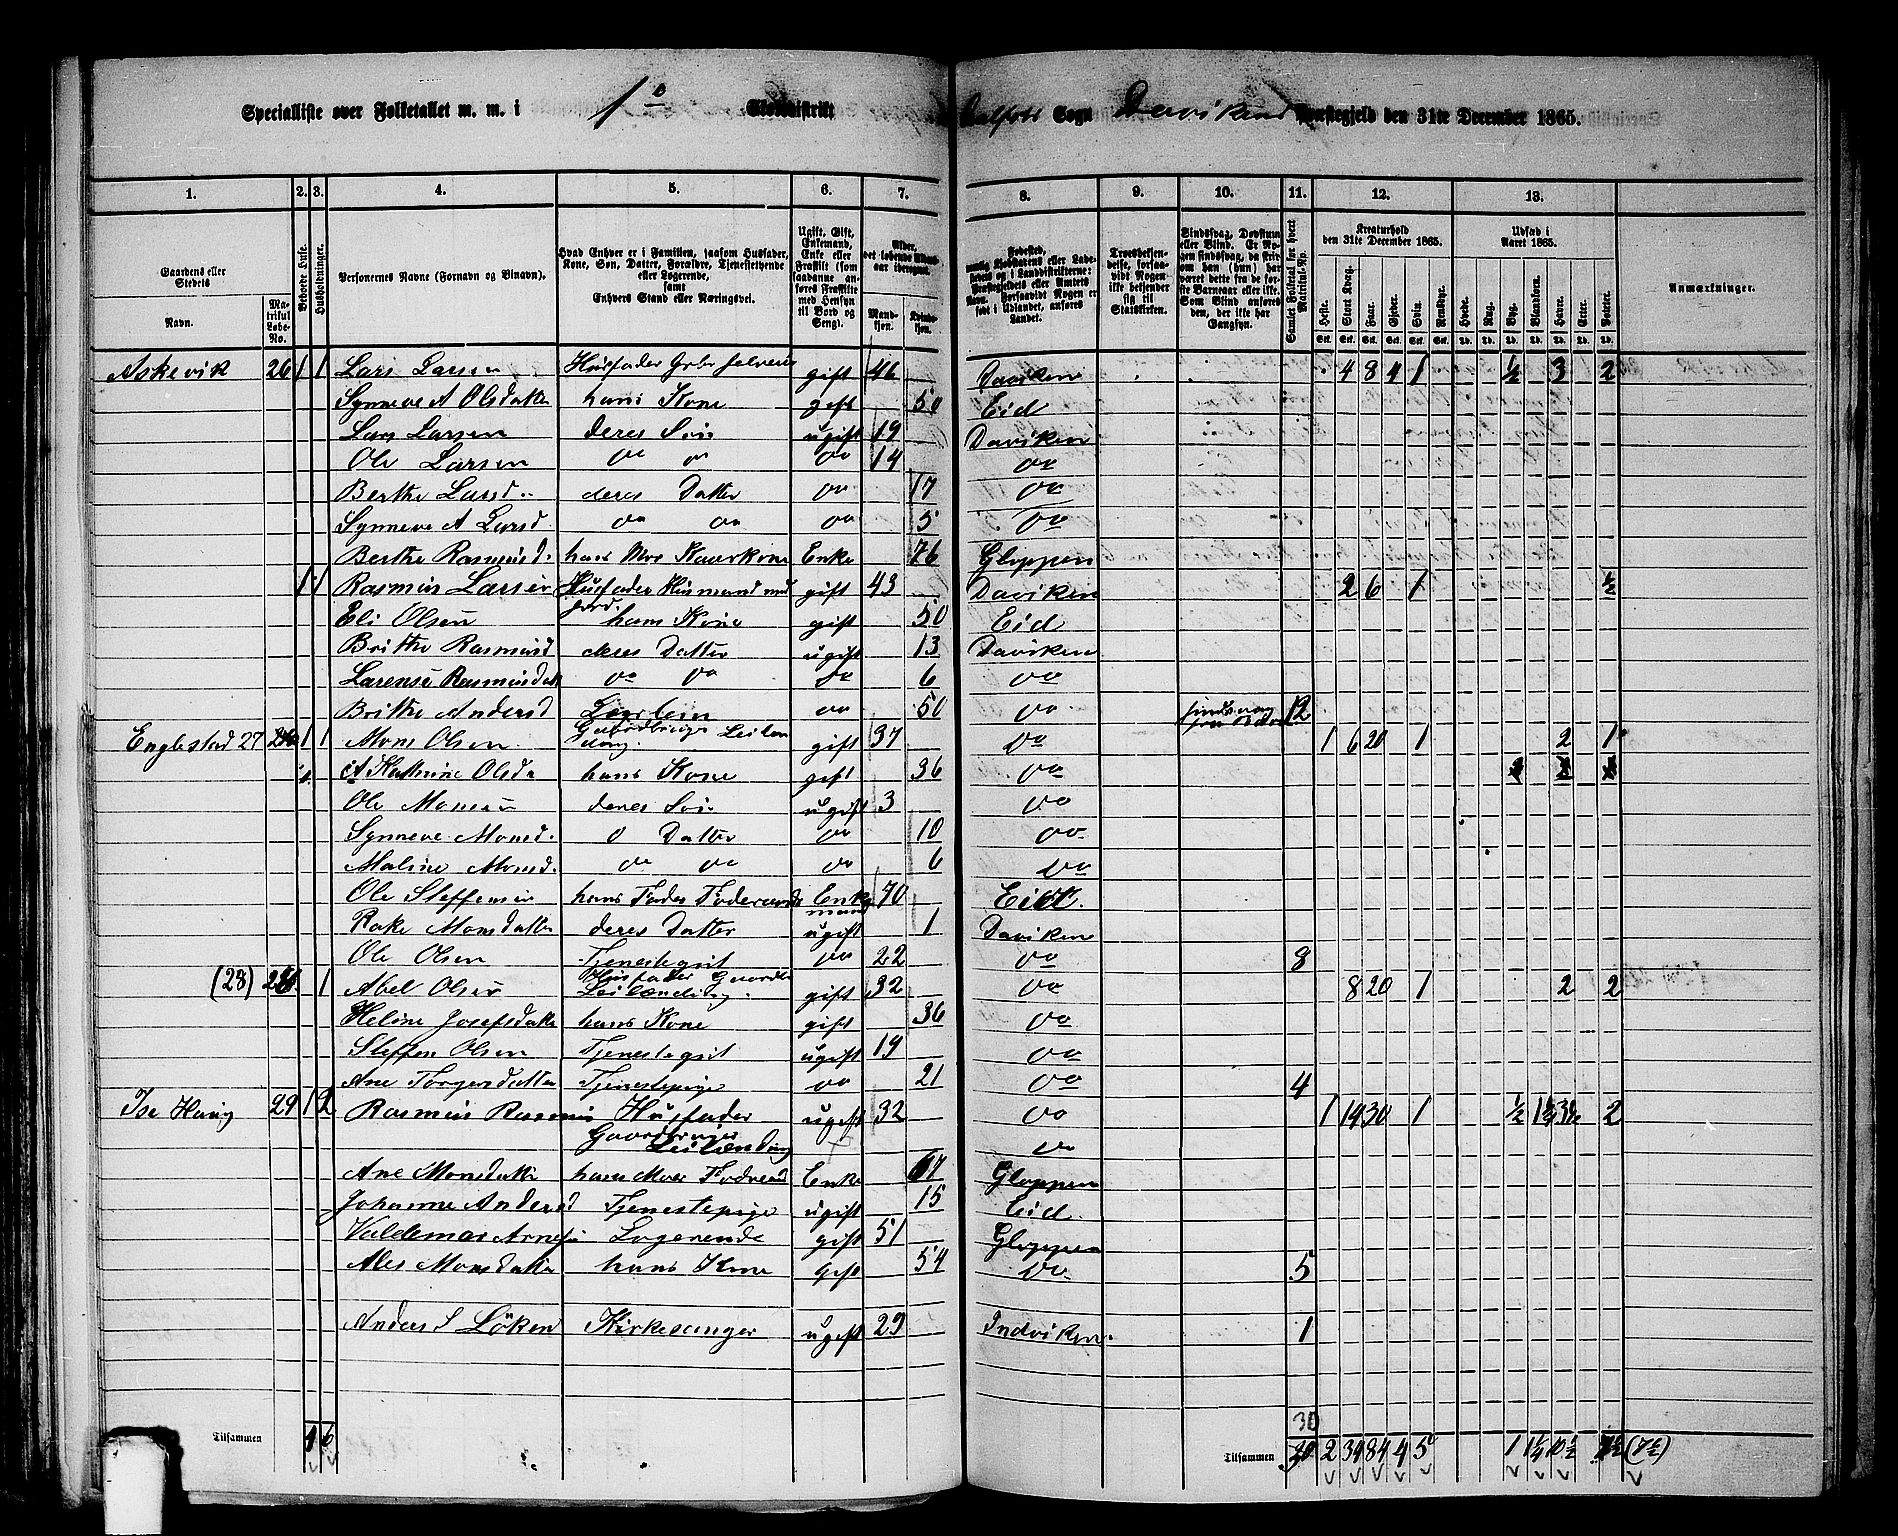 Specialliste over Folketallet m. m. i 1 o Skoledistrikt Dalfots Sogn Daviken Præstegjeld den 31te December 1865.
1. 2. 3. 4. 5. 6. 7. 8. 9. 10. 11. 12. 13.
Gaardens eller Stedets
Navn.
Matrikul Løbe-No.
Beboede Huse.
Husholdninger.
Personernes Navne (Fornavn og Tilnavn).
Hvad Enhver er i Familien, saasom Husfader, Kone, Søn, Datter, Forældre, Tjenestetyende eller Logerende, samt Enhvers Stand eller Næringsvei.
Ugift, Gift, Enkemand, Enke eller Fraskilt
Mandkjøn.
Kvindekjøn.
Fødested
Kreaturhold den 31te December 1865.
Udsæd i Aaret 1865.
Heste. Stort Kvæg. Faar. Gjeder. Svin. Rensdyr. Hvede. Rug. Byg. Blandkorn. Havre. Erter. Poteter.
Anmærkninger.
Askevik 26 1 1 Lars Larsen Husfader Grbr selveier gift 46 Daviken 4 8 4 1 ½ 3 2
Synneve A Olsdatter hans Kone gift 50 Eid
Lars Larsen deres Søn ugift 19 Daviken
Ole Larsen do do do 14 do
Berthe Larsd. deres Datter do 17 do
Synneve A Larsd. do do do 5 do
Berthe Rasmusd. hans Mor Kaarkone Enke 76 Gloppen
1 1 Rasmus Larsen Husfader Husmand med Jord. gift 43 Daviken 2 6 1 ½
Eli Olsen hans Kone gift 50 Eid
Brithe Rasmusd deres Datter ugift 13 Daviken
Larense Rasmusdatt do do do 6 do
Brithe Andersd Lægslem do 50 do 12
Englestad 27 1 1 Mons Olsen Gaardbruger Leilending gift 37 do 1 6 20 1 2 1
A Kathrine Olsda hans Kone gift 36 do
Ole Monsen deres Søn ugift 3 do
Synneve Monsd. do Datter do 10 do
Maline Monsd. do do do 6 do
Ole Steffensen hans Fader Føderaads Enkemand 70 Eid.
Rake Monsdatter deres Datter ugift 1 Daviken
Ole Olsen Tjenestegut do 22 do 8
(28) 1 Abel Olsen Husfader Gaardbr Leilænding. gift 32 do 8 20 1 2 2
Heline Josefsdatter hans Kone gift 36 do
Steffen Olsen Tjenestegut ugift 19 do
Ane Torgersdatter Tjenestepige do 21 do 4
Ise Haug 29 1 2 Rasmus Rasmus Husfader ugift 32 do 1 14 30 1 ½ 1¼ 3½ 2
Gaardbruger Leilænding do
Ane Monsdatter hans Moer Fødraad Enke 67 Gloppen
Johanne Andersd Tjenestepige ugift 15 Eid.
Valdemar Arnesen Logerende gift 51 Gloppen
Ales Monsdatter hans Kone gift 54 do 5
Anders S Löken Kirkesanger ugift 29 Indviken 1
Tilsammen 4 6 Tilsammen 30 2 34 84 4 5 1 1¼ 10½ (7½)